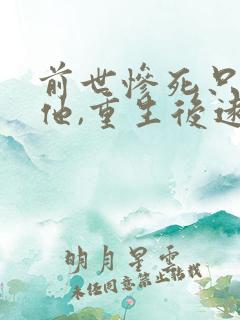 前世慘死只
他,重生後逑
明月星雲
未经同意禁止转载